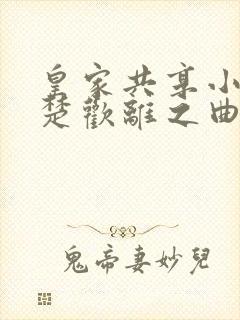 皇家共享小
楚歡離之曲
鬼帝妻妙兒